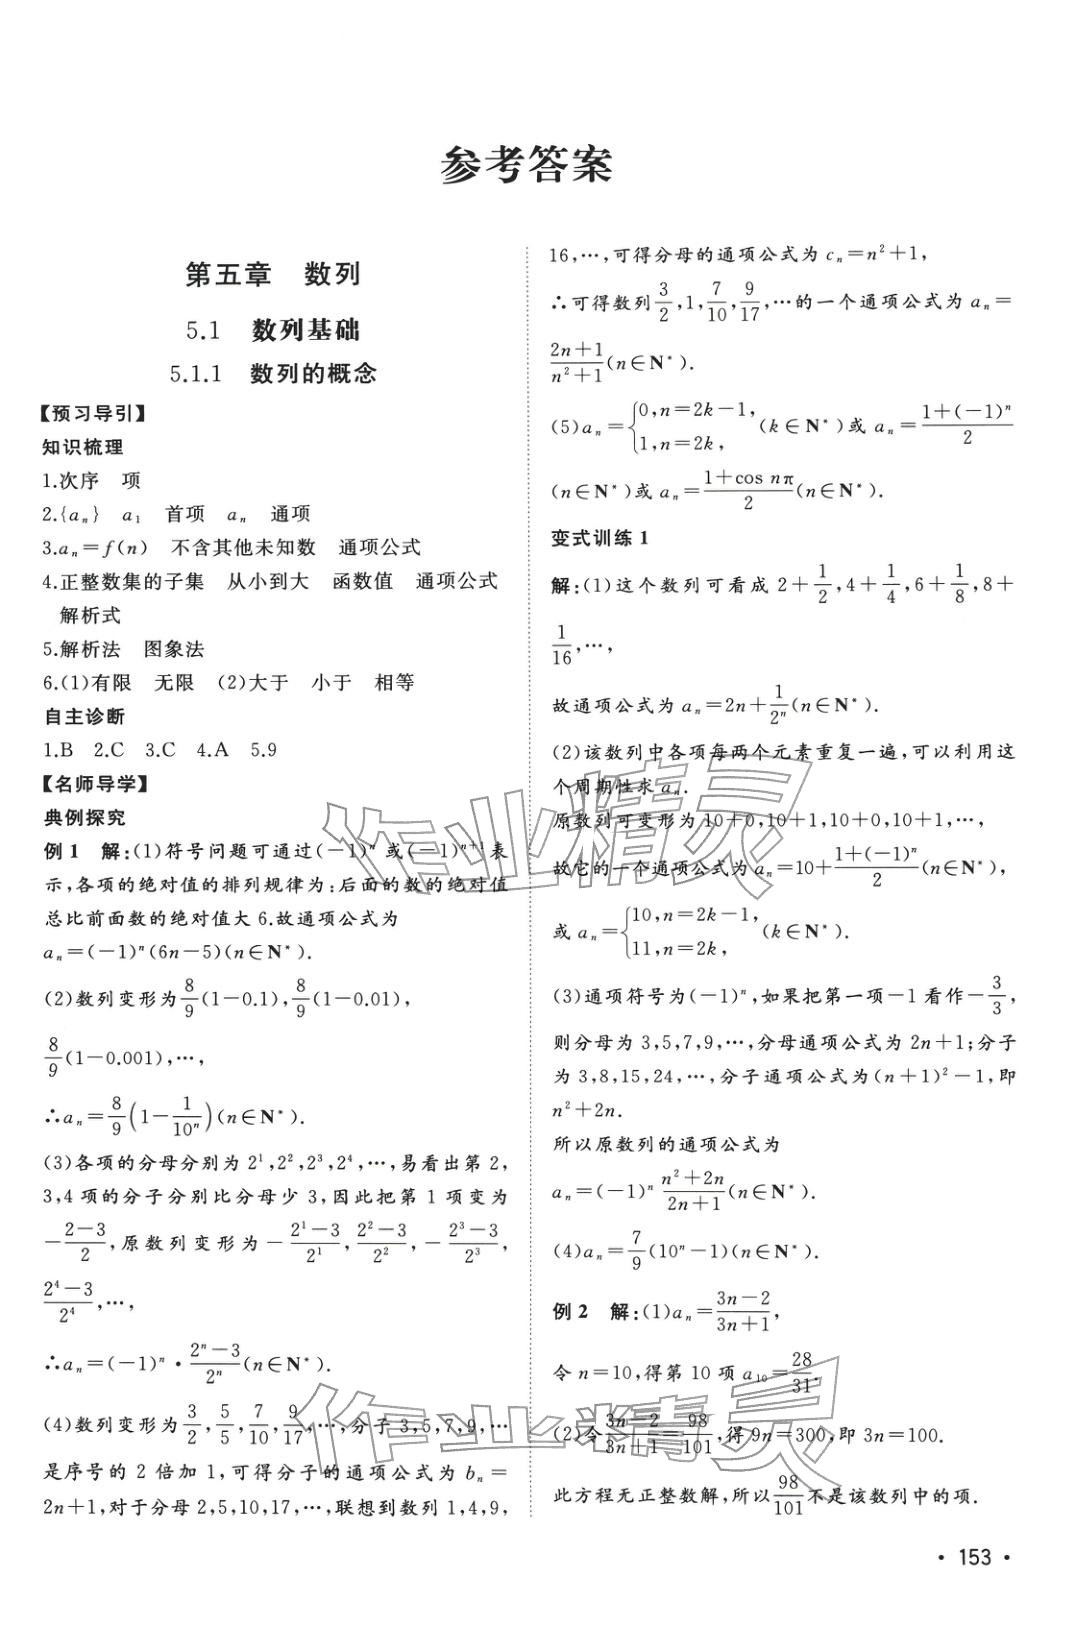 参考答案
第五章　数列
5.1　数列基础
5.1.1　数列的概念
【预习导引】
知识梳理
1.次序　项
2.{aₙ}　a₁　首项　aₙ　通项
3.aₙ=f(n)　不含其他未知数　通项公式
4.正整数集的子集　从小到大　函数值　通项公式
解析式
5.解析法　图象法
6.(1)有限　无限　(2)大于　小于　相等
自主诊断
1.B　2.C　3.C　4.A　5.9
【名师导学】
典例探究
例1　解:(1)符号问题可通过(-1)ⁿ或(-1)ⁿ⁺¹表
示,各项的绝对值的排列规律为:后面的数的绝对值
总比前面数的绝对值大6.故通项公式为
aₙ=(-1)ⁿ(6n-5)(n∈N*).
(2)数列变形为8/9(1-0.1),8/9(1-0.01),
8/9(1-0.001),…,
∴aₙ=8/9(1-1/10ⁿ)(n∈N*).
(3)各项的分母分别为2¹,2²,2³,2⁴,…,易看出第2,
3,4项的分子分别比分母少3,因此把第1项变为
-(2-3)/2,原数列变形为-(2¹-3)/2¹,(2²-3)/2²,-(2³-3)/2³,
(2⁴-3)/2⁴,…,
∴aₙ=(-1)ⁿ·(2ⁿ-3)/2ⁿ(n∈N*).
(4)数列变形为3/2,5/5,7/10,9/17,…,分子3,5,7,9,…
是序号的2倍加1,可得分子的通项公式为bₙ=
2n+1,对于分母2,5,10,17,…,联想到数列1,4,9,
16,…,可得分母的通项公式为cₙ=n²+1,
∴可得数列3/2,1,7/10,9/17,…的一个通项公式为aₙ=
(2n+1)/(n²+1)(n∈N*).
(5)aₙ={0,n=2k-1, 1,n=2k,(k∈N*)或aₙ=(1+(-1)ⁿ)/2
(n∈N*)或aₙ=(1+cos nπ)/2(n∈N*).
变式训练1
解:(1)这个数列可看成2+1/2,4+1/4,6+1/8,8+
1/16,…,
故通项公式为aₙ=2n+1/2ⁿ(n∈N*).
(2)该数列中各项每两个元素重复一遍,可以利用这
个周期性求aₙ.
原数列可变形为10+0,10+1,10+0,10+1,…,
故它的一个通项公式为aₙ=10+(1+(-1)ⁿ)/2(n∈N*),
或aₙ={10,n=2k-1, 11,n=2k,(k∈N*).
(3)通项符号为(-1)ⁿ,如果把第一项-1看作-3/3,
则分母为3,5,7,9,…,分母通项公式为2n+1;分子
为3,8,15,24,…,分子通项公式为(n+1)²-1,即
n²+2n.
所以原数列的通项公式为
aₙ=(-1)ⁿ(n²+2n)/(2n+1)(n∈N*).
(4)aₙ=7/9(10ⁿ-1)(n∈N*).
例2　解:(1)aₙ=(3n-2)/(3n+1),
令n=10,得第10项a₁₀=28/31.
(2)令(3n-2)/(3n+1)=98/101,得9n=300,即3n=100.
此方程无正整数解,所以98/101不是该数列中的项.
· 153 ·
作业精灵
作业精灵